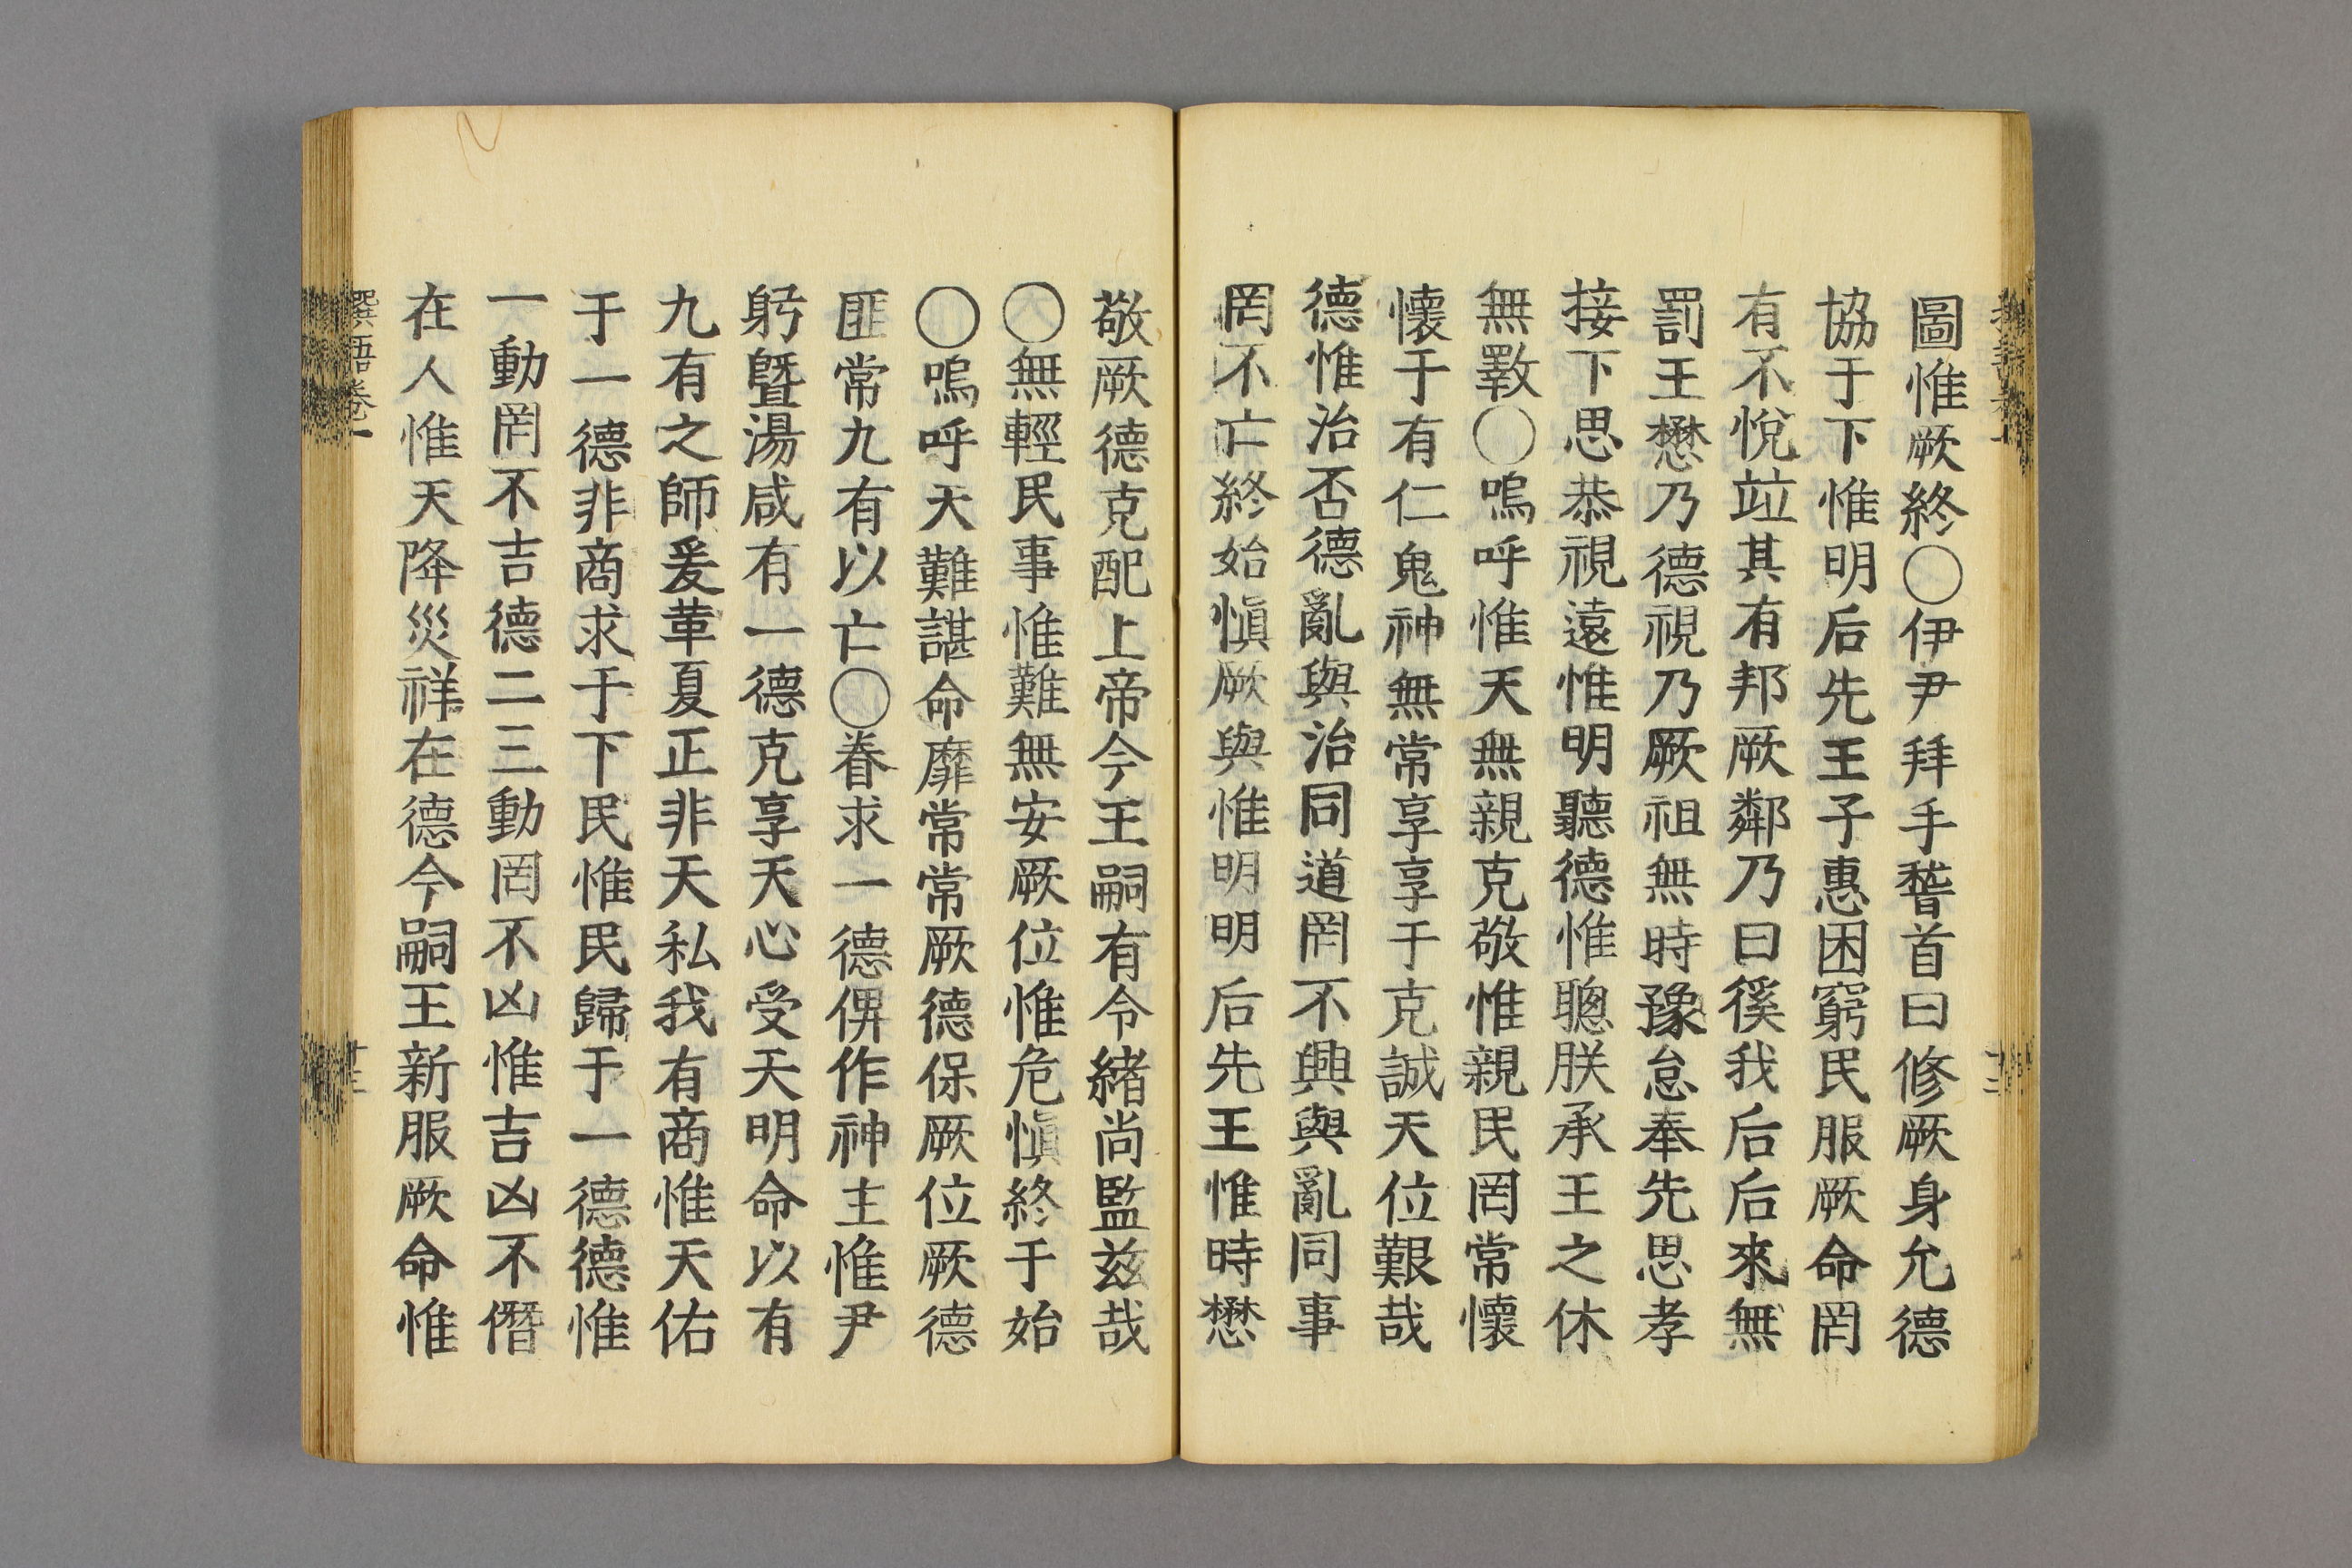 圖惟厥終○伊尹拜手稽首曰修厥身允德
協于下惟明后先王子惠困窮民服厥命罔
有不悅竝其有邦厥鄰乃曰徯我后后來無
罰王懋乃德視乃厥祖無時豫怠奉先思孝
接下思恭視遠惟明聽德惟聰朕承王之休
無斁○嗚呼惟天無親克敬惟親民罔常懷
懷于有仁鬼神無常享享于克誠天位艱哉
德惟治否德亂與治同道罔不興與亂同事
罔不亡終始愼厥與惟明明后先王惟時懋
敬厥德克配上帝今王嗣有令緖尚監茲哉
○無輕民事惟難無安厥位惟危愼終于始
○嗚呼天難諶命靡常常厥德保厥位厥德
匪常九有以亡○眷求一德俾作神主惟尹
躬曁湯咸有一德克享天心受天明命以有
九有之師爰革夏正非天私我有商惟天佑
于一德非商求于下民惟民歸于一德德惟
一動罔不吉德二三動罔不凶惟吉凶不僭
在人惟天降災祥在德今嗣王新服厥命惟
語卷一
十三